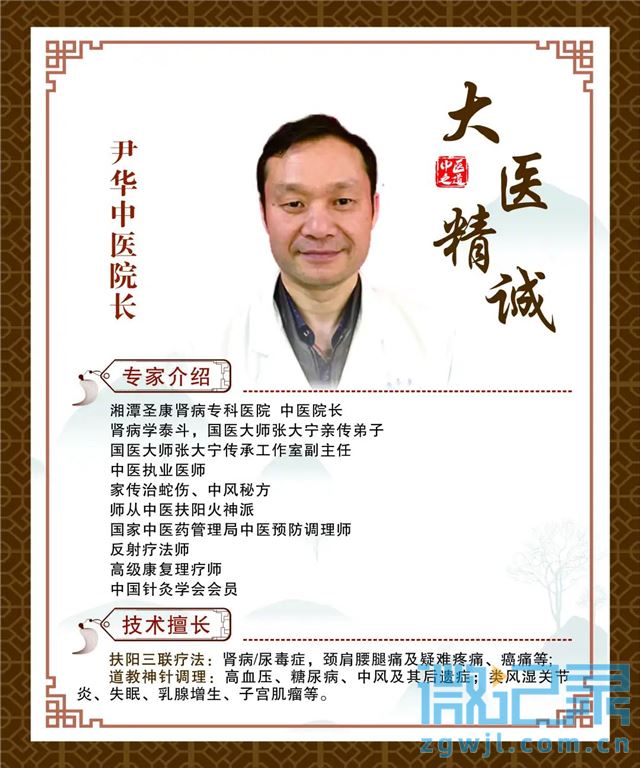 大医精诚
中医之道
尹华中医院长
专家介绍
湘潭圣康肾病专科医院 中医院长
肾病学泰斗，国医大师张大宁亲传弟子
国医大师张大宁传承工作室副主任
中医执业医师
家传治蛇伤、中风秘方
师从中医扶阳火神派
国家中医药管理局中医预防调理师
反射疗法师
高级康复理疗师
中国针灸学会会员
技术擅长
扶阳三联疗法：肾病/尿毒症，颈肩腰腿痛及疑难疼痛、癌痛等;
道教神针调理：高血压、糖尿病、中风及其后遗症；类风湿关节
炎、失眠、乳腺增生、子宫肌瘤等。
微记录
zgwjl.com.cn